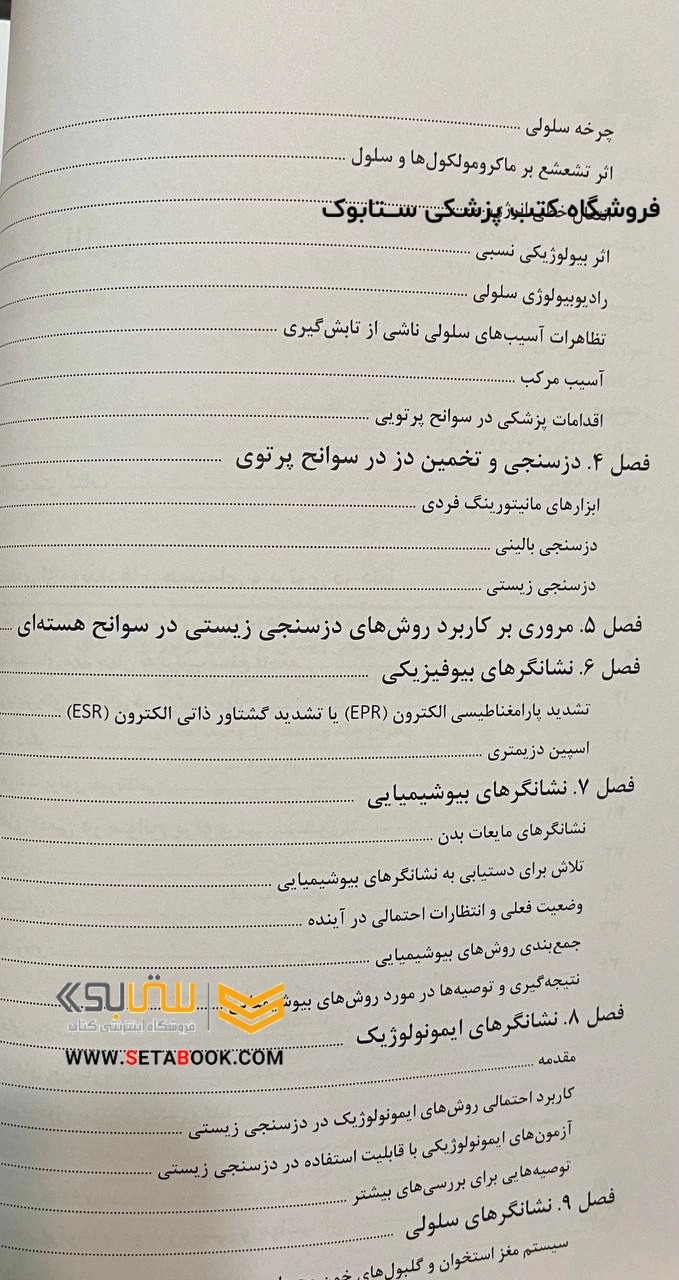 چرخه سلولی
اثر تشعشع بر ماکرومولکول‌ها و سلول
فروشگاه کتب پزشکی ستابوک
اثر بیولوژیکی نسبی
رادیوبیولوژی سلولی
تظاهرات آسیب‌های سلولی ناشی از تابش‌گیری
آسیب مرکب
اقدامات پزشکی در سوانح پرتویی
فصل ۴. دزسنجی و تخمین دز در سوانح پرتوی
ابزارهای مانیتورینگ فردی
دزسنجی بالینی
دزسنجی زیستی
فصل ۵. مروری بر کاربرد روش‌های دزسنجی زیستی در سوانح هسته‌ای
فصل ۶. نشانگرهای بیوفیزیکی
تشدید پارامغناطیسی الکترون (EPR) یا تشدید گشتاور ذاتی الکترون (ESR)
اسپین دزیمتری
فصل ۷. نشانگرهای بیوشیمیایی
نشانگرهای مایعات بدن
تلاش برای دستیابی به نشانگرهای بیوشیمیایی
وضعیت فعلی و انتظارات احتمالی در آینده
جمع‌بندی روش‌های بیوشیمیایی
نتیجه‌گیری و توصیه‌ها در مورد روش‌های
ستابوک
فروشگاه اینترنتی کتاب
فصل ۸. نشانگرهای ایمونولوژیک
WWW.SETABOOK.COM
مقدمه
کاربرد احتمالی روش‌های ایمونولوژیک در دزسنجی زیستی
آزمون‌های ایمونولوژیکی با قابلیت استفاده در دزسنجی زیستی
توصیه‌هایی برای بررسی‌های بیشتر
فصل ۹. نشانگرهای سلولی
سیستم مغز استخوان و گلبول‌های